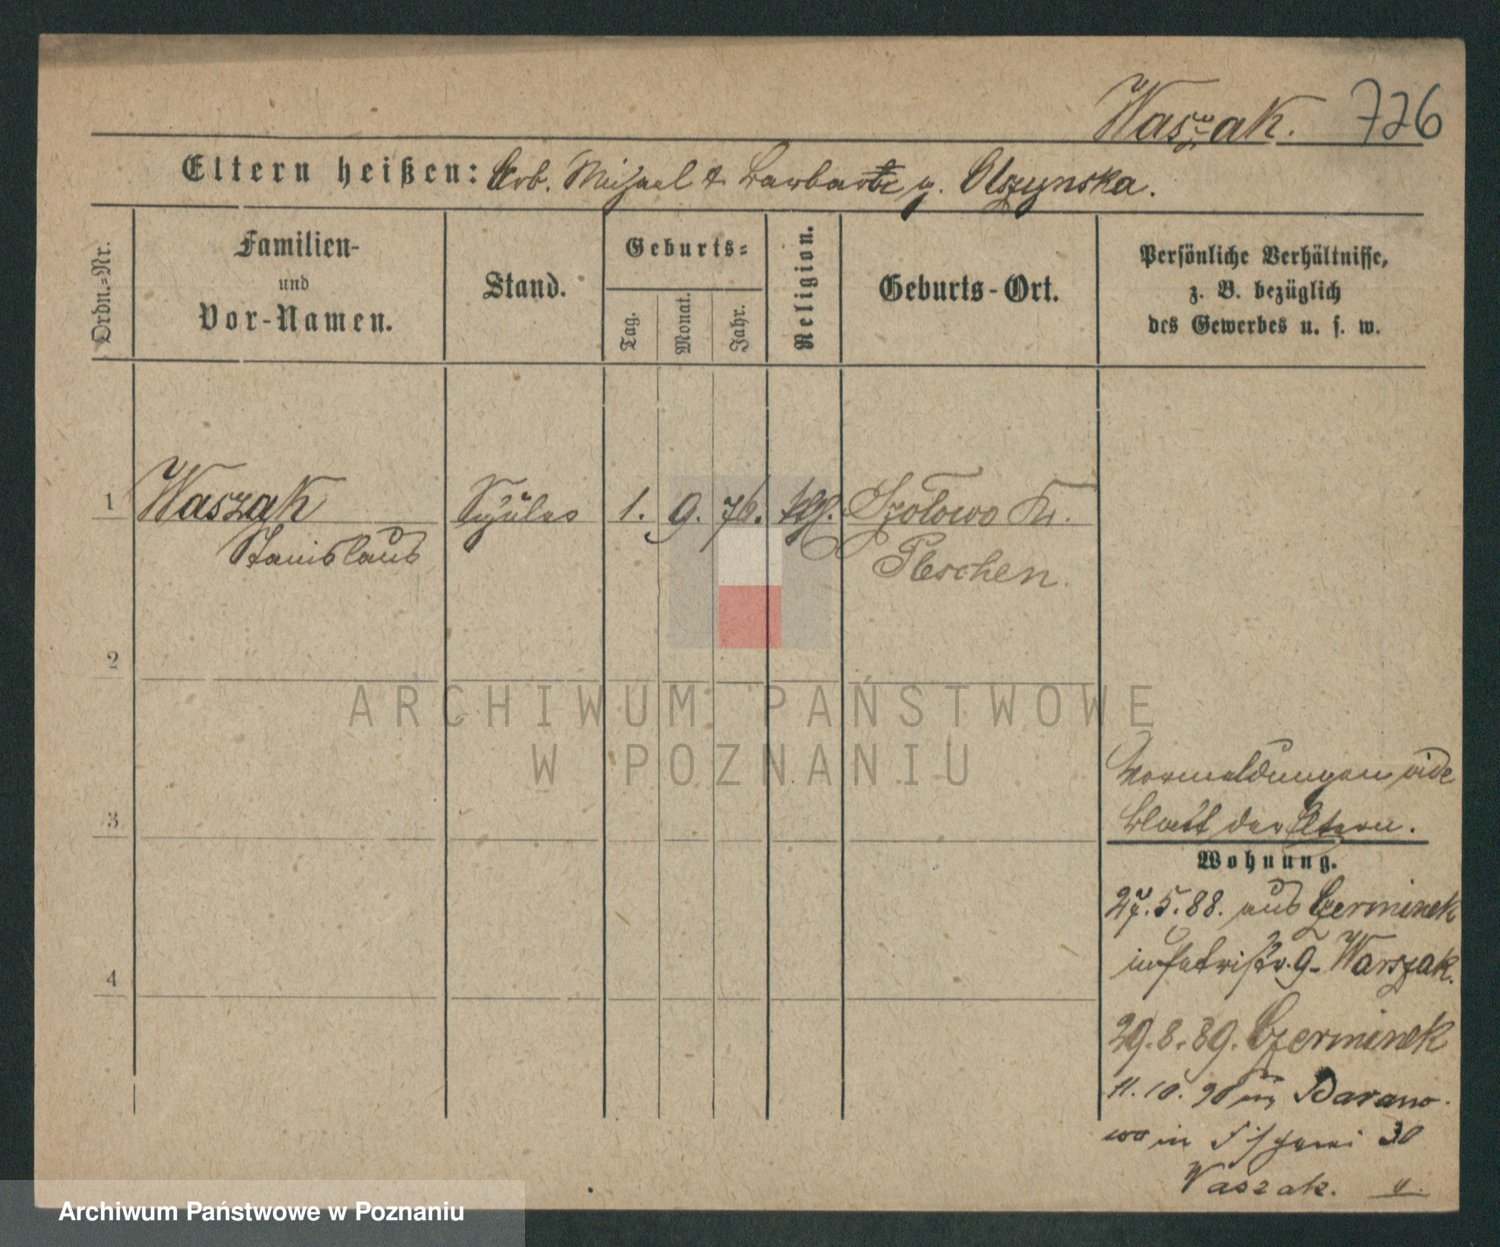 Waszak. 726
Eltern heißen: Arb. Michael & Barbara g. Olszynska.
Ordn.-Nr.
Familien-
und
Vor-Namen.
Stand.
Geburts-
Tag.
Monat.
Jahr.
Religion.
Geburts-Ort.
Persönliche Verhältnisse,
z. B. bezüglich
des Gewerbes u. s. w.
1 Waszak Schüler 1. 9. 76. kth. Kr.
Stanislaus Pleschen.
2
3
4
Vormeldungen vide
Blatt der Eltern.
Wohnung.
27.5.88. aus Czerminek
9. Warszak.
29.8.89. Czerminek
11.10.90 Barano-
wo in Fischerei 30
Waszak.
ARCHIWUM PAŃSTWOWE
W POZNANIU
Archiwum Państwowe w Poznaniu